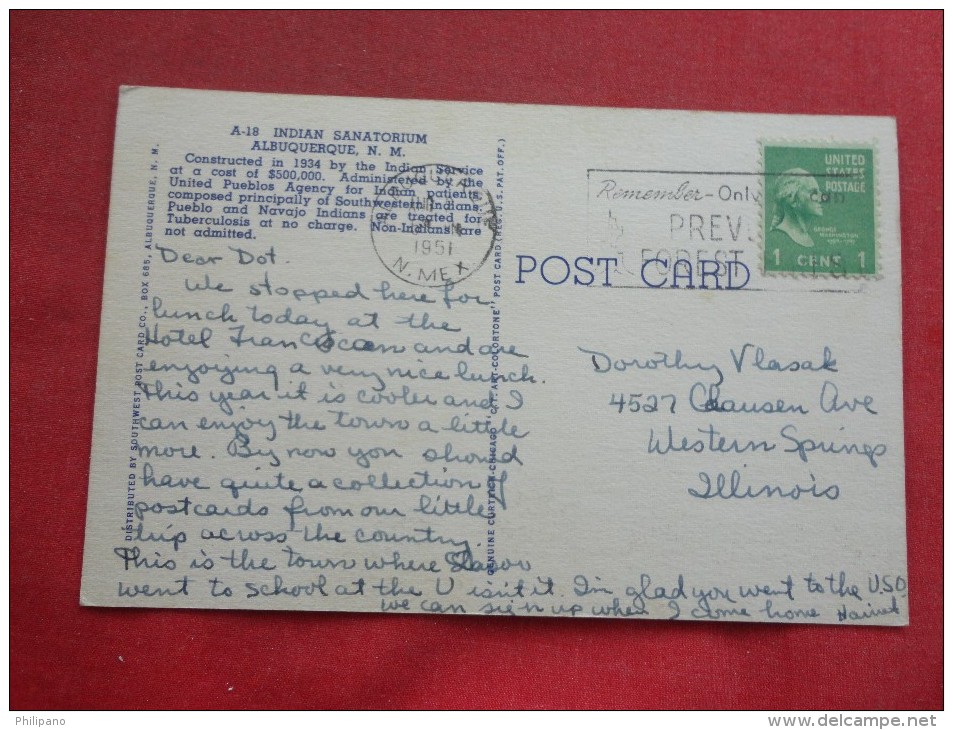 A-18 INDIAN SANATORIUM
ALBUQUERQUE, N. M.
Constructed in 1934 by the Indian Service
at a cost of $500,000. Administered by the
United Pueblos Agency for Indian patients,
composed principally of Southwestern Indians.
Pueblo and Navajo Indians are treated for
Tuberculosis at no charge. Non-Indians are
not admitted.
Dear Dot.
We stopped here for
lunch today at the
Hotel Franciscan and are
enjoying a very nice lunch.
This year it is cooler and I
can enjoy the town a little
more. By now you should
have quite a collection of
postcards from our little
trip across the country.
This is the town where
went to school at the U isn't it. I'm glad you went to the U.S.O.
we can sign up when I come home
DISTRIBUTED BY SOUTHWEST POST CARD CO., BOX 685, ALBUQUERQUE, N. M.
GENUINE CURTEICH-CHICAGO "C.T. ART-COLORTONE" POST CARD (REG. U.S. PAT. OFF.)
1951
N. MEX
Remember-Only
PREV
FOREST
UNITED
STATES
POSTAGE
GEORGE
WASHINGTON
1 CENT 1
POST CARD
Dorothy Vlasak
4527 Clausen Ave
Western Springs
Illinois
Philipano
www.delcampe.net